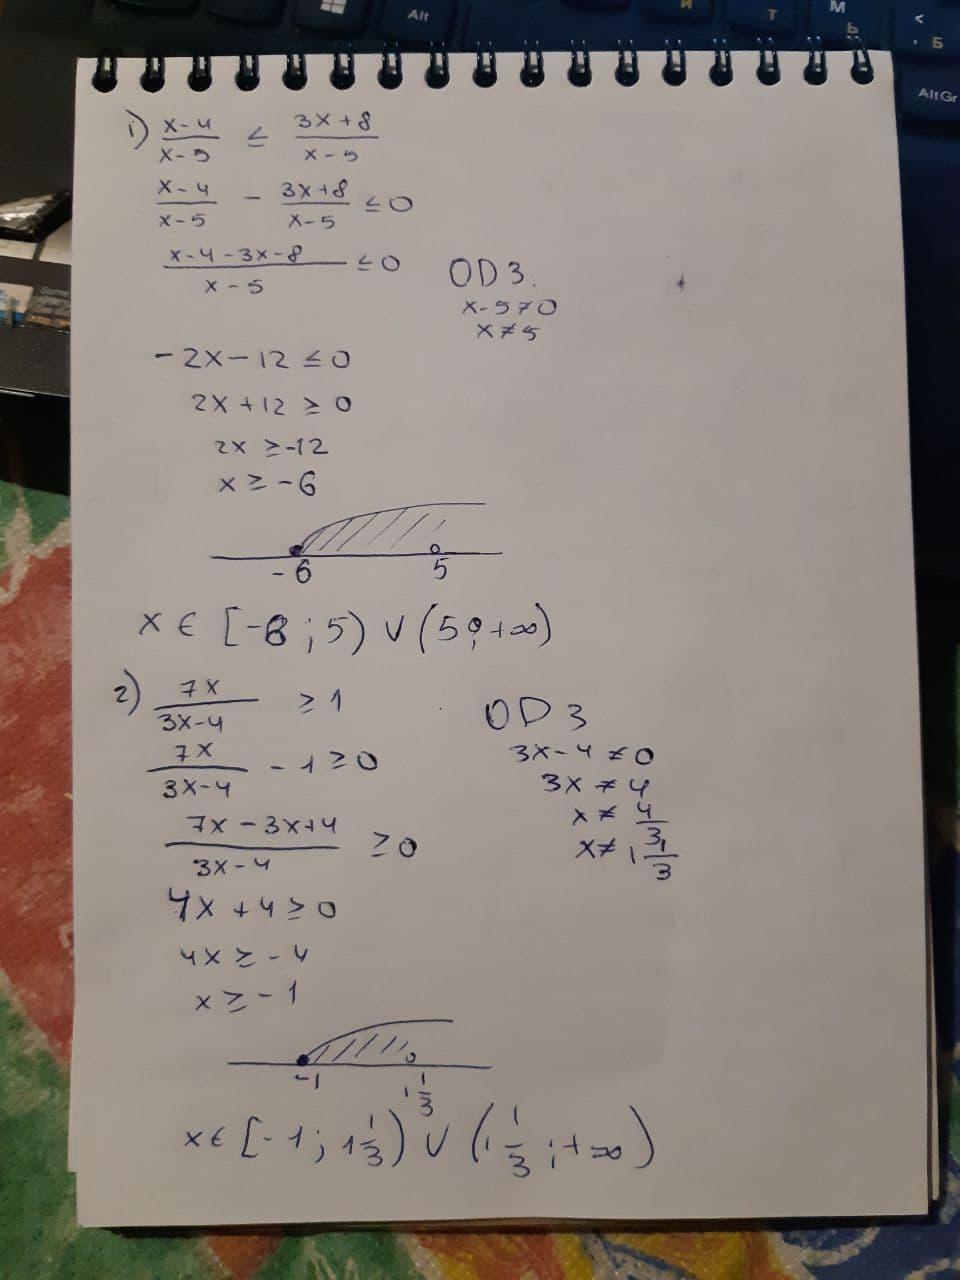 Alt
И
Т
М
Ь
<
, Б
AltGr
1) x-4/x-5 ≤ 3x+8/x-5
x-4/x-5 - 3x+8/x-5 ≤ 0
x-4-3x-8/x-5 ≤ 0
OD3.
x-5≠0
x≠5
-2x-12 ≤ 0
2x+12 ≥ 0
2x ≥ -12
x ≥ -6
-6 5
x ∈ [-6; 5) ∨ (5; +∞)
2) 7x/3x-4 ≥ 1
OD3
7x/3x-4 - 1 ≥ 0
3x-4 ≠ 0
3x ≠ 4
7x-3x+4/3x-4 ≥ 0
x ≠ 4/3
x ≠ 1 1/3
4x+4 ≥ 0
4x ≥ -4
x ≥ -1
-1 1 1/3
x ∈ [-1; 1 1/3) ∨ (1 1/3; +∞)